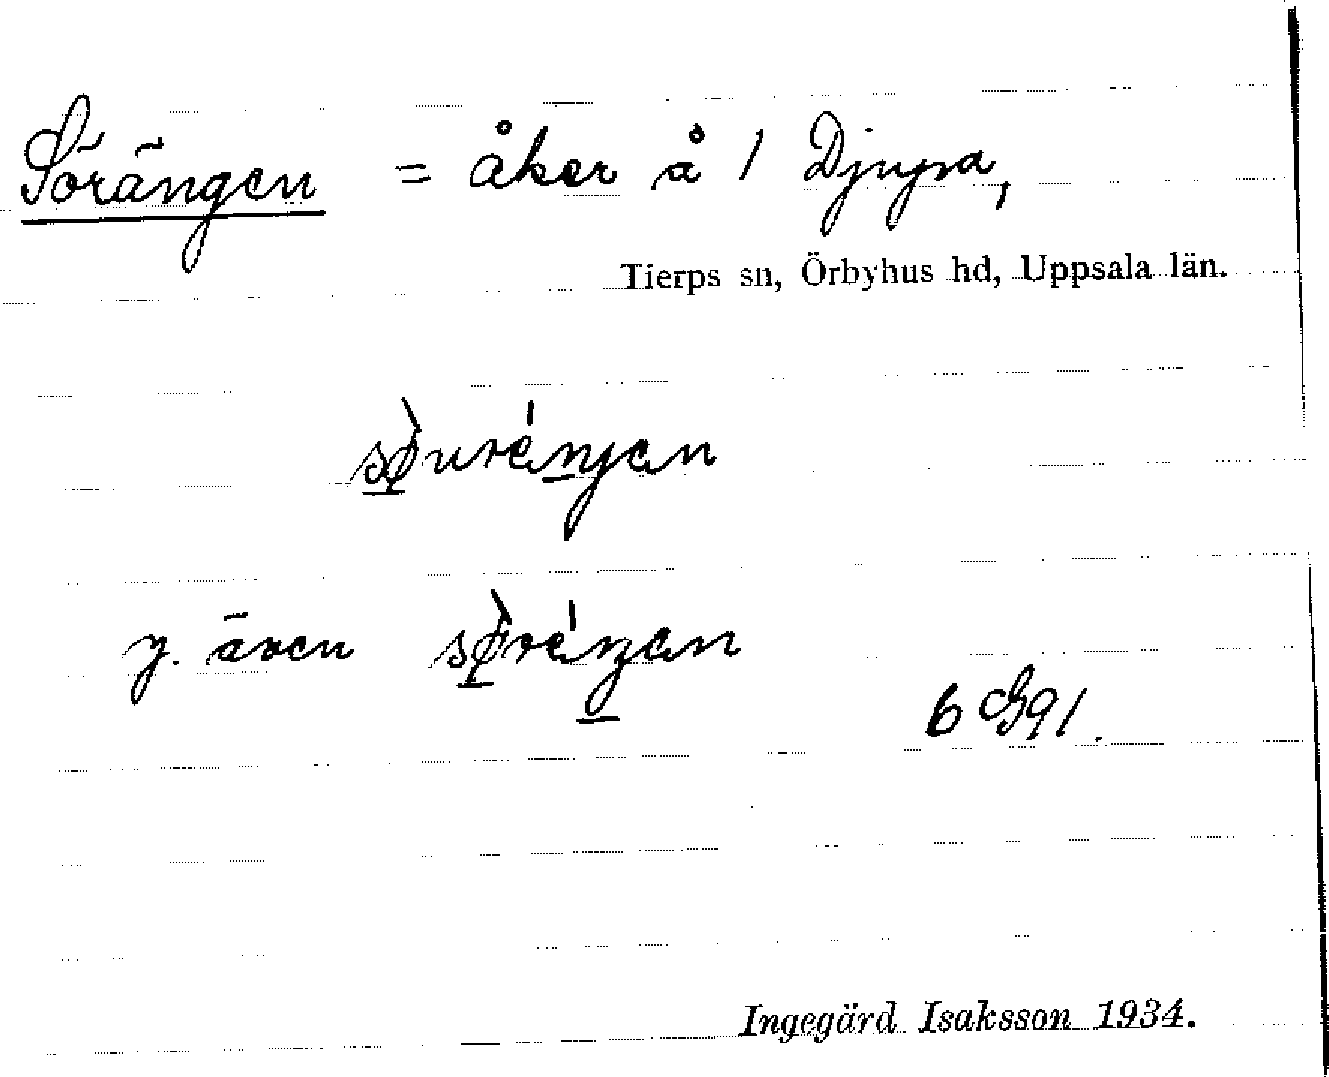 Sörängen = åker å 1 Djupa,
Tierps sn, Örbyhus hd, Uppsala län.
y. även
6 G 91.
Ingegärd Isaksson 1934.